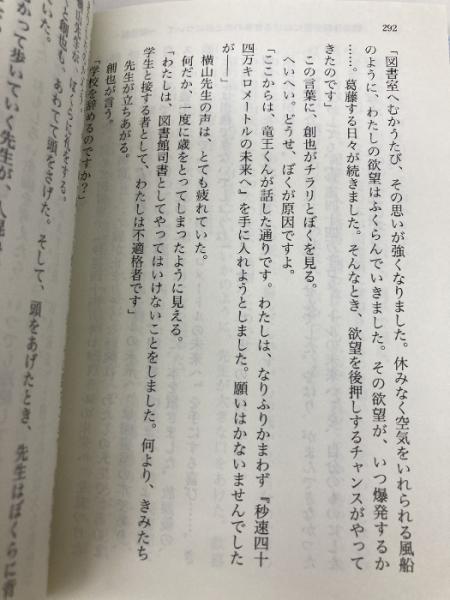 292
「図書室へむかうたび、その思いが強くなりました。休みなく空気をいれられる風船
のように、わたしの欲望はふくらんでいきました。その欲望が、いつ爆発するか
……。葛藤する日々が続きました。そんなとき、欲望を後押しするチャンスがやって
きたのです」
この言葉に、創也がチラリとぼくを見る。
へいへい。どうせ、ぼくが原因ですよ。
「ここからは、竜王くんが話した通りです。わたしは、なりふりかまわず『秒速四十
四万キロメートルの未来へ』を手に入れようとしました。願いはかないませんでした
が――」
横山先生の声は、とても疲れていた。
何だか、一度に歳をとってしまったように見える。
「わたしは、図書館司書としてやってはいけないことをしました。何より、きみたち
学生と接する者として、わたしは不適格者です」
先生が立ちあがる。
創也が言う。
「学校を辞めるのですか？」
創也も、あわてて頭をさげた。そして、頭をあげたとき、先生はぼくらに背
かって歩いていく先生が、
いた。